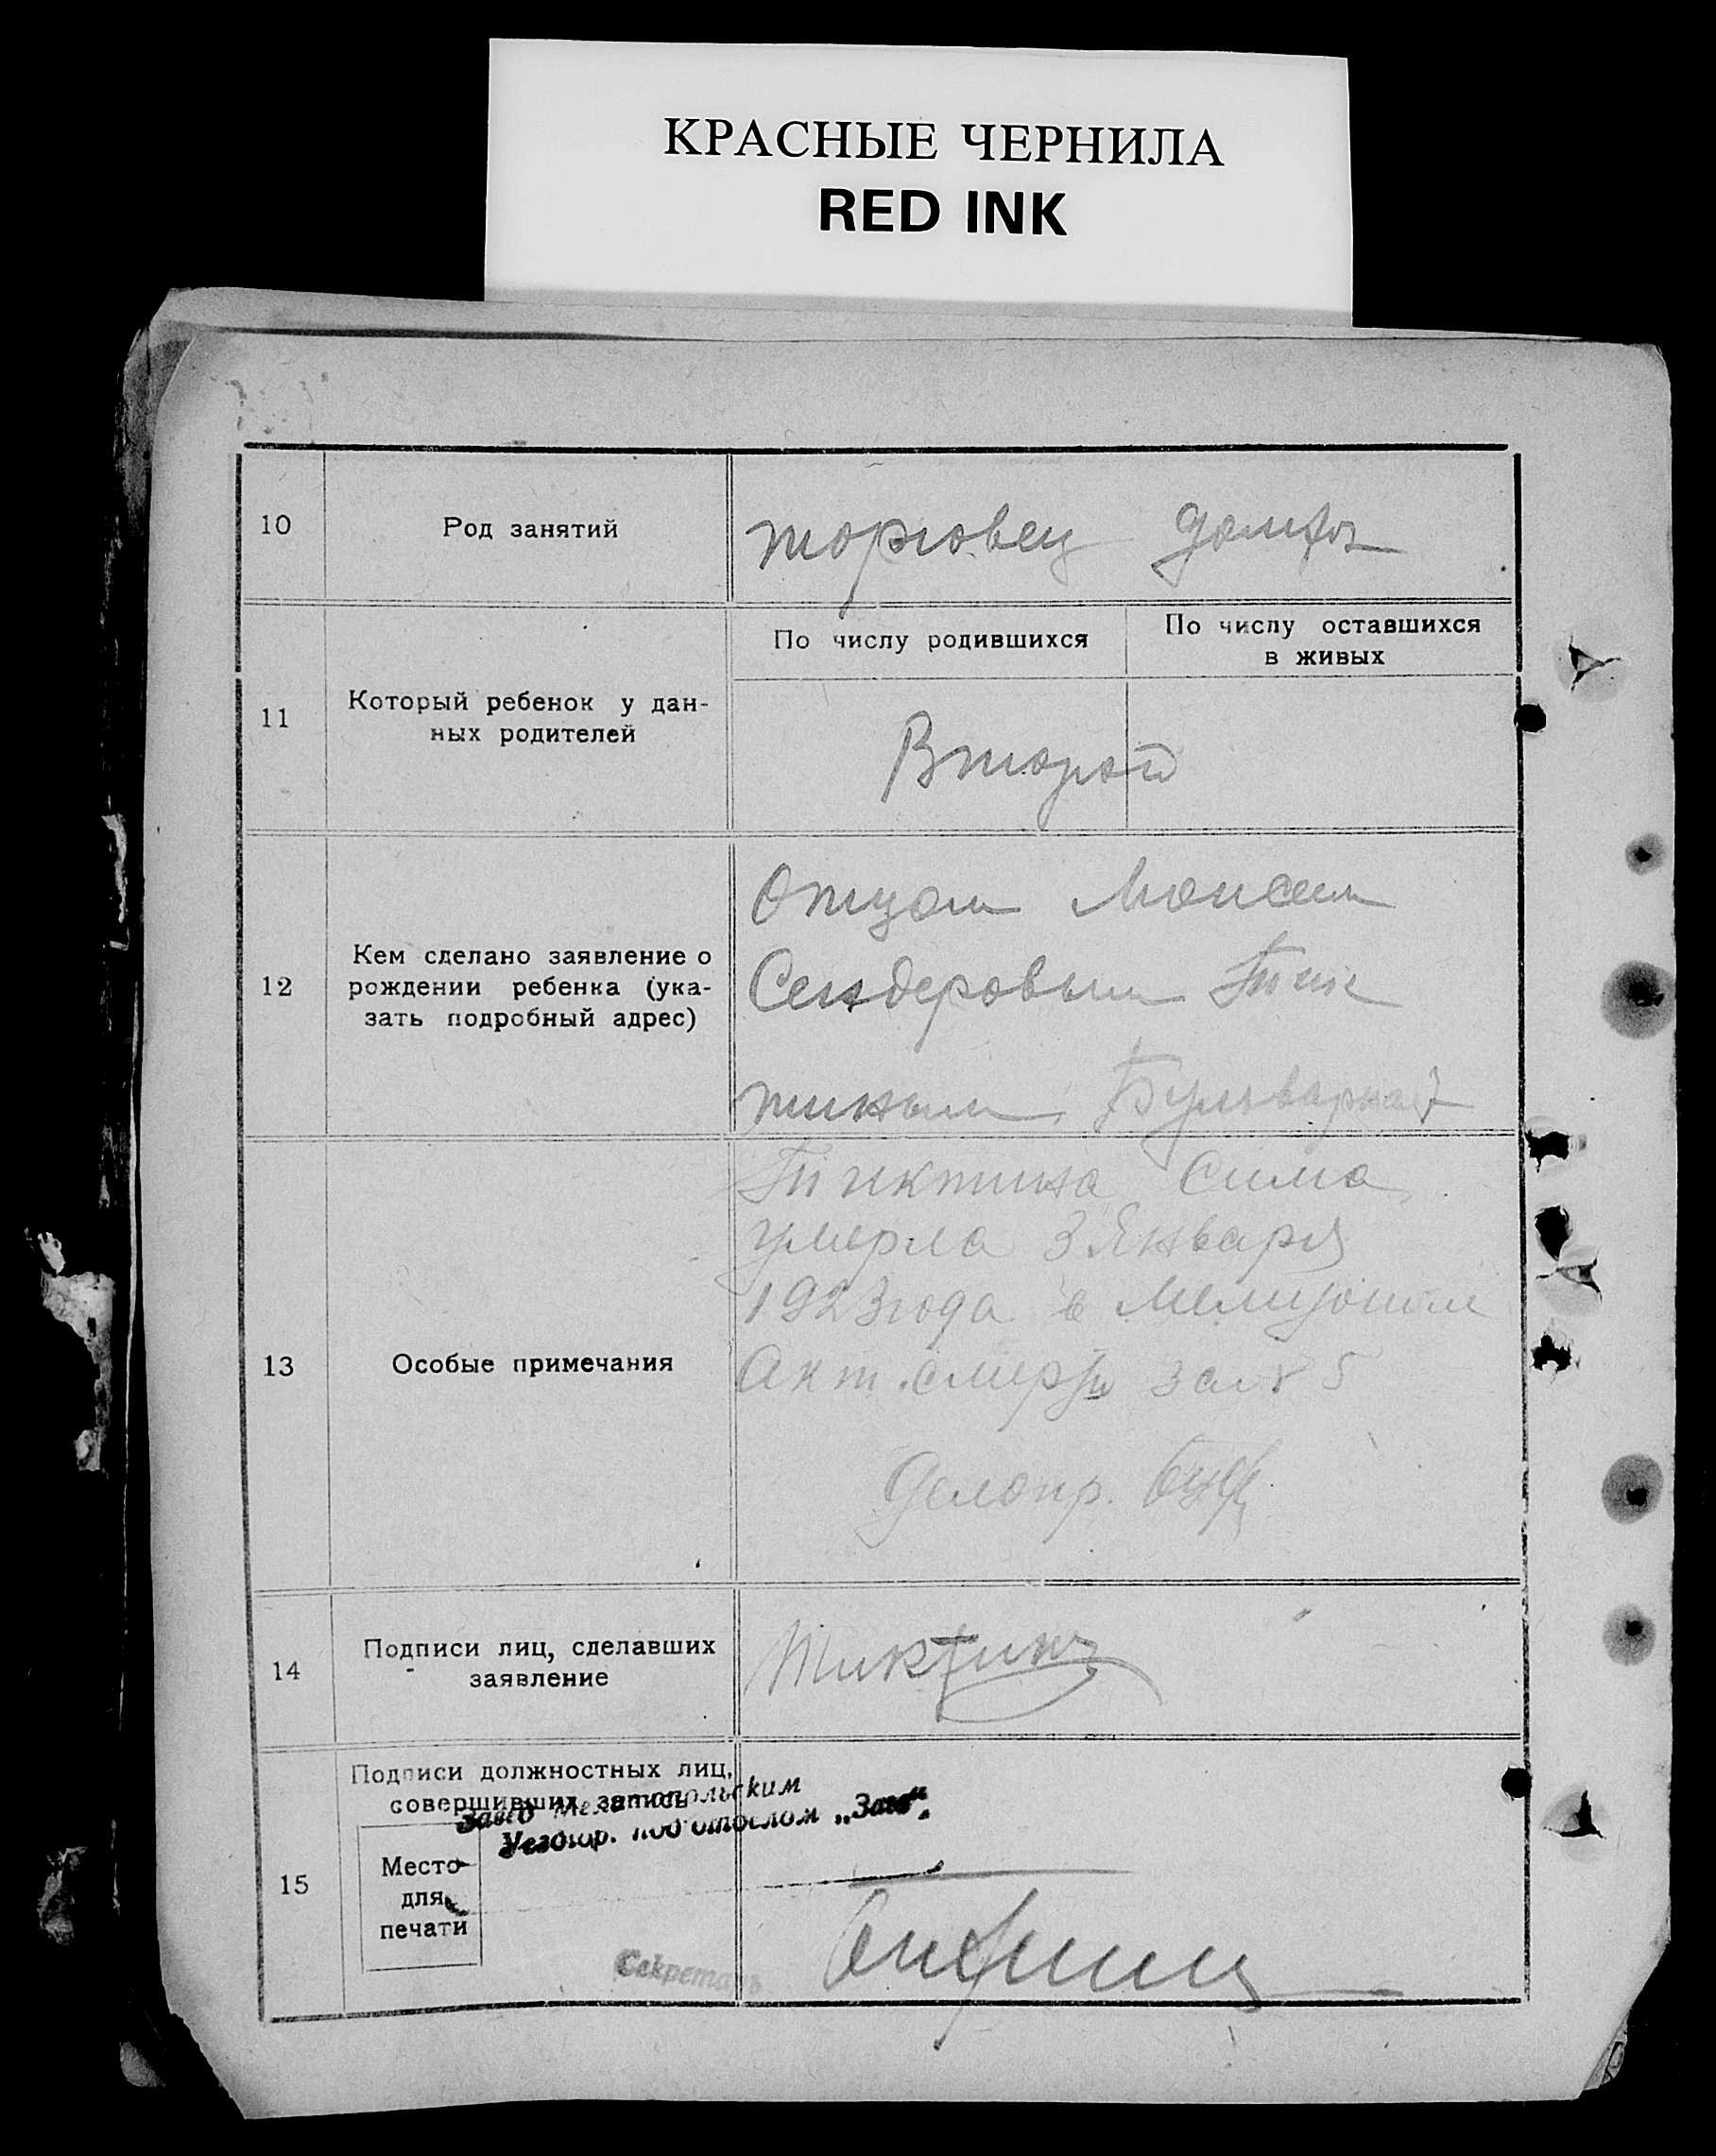 КРАСНЫЕ ЧЕРНИЛА
RED INK
10
Род занятий
торговец домхоз
11
Который ребенок у дан-
ных родителей
По числу родившихся
По числу оставшихся
в живых
Второй
12
Кем сделано заявление о
рождении ребенка (ука-
зать подробный адрес)
Отцом Моисеем
Сендеровым Тик
тиным Бульварной
13
Особые примечания
Тиктина Сима
умерла 3 Января
1923 года в Мелитополе
Акт смерти за № 5
Делопр.
14
Подписи лиц, сделавших
заявление
Тиктин
15
Подписи должностных лиц,
совершивших запись
Завед Мелитопольским
под'отделом „Загс“
Место
для
печати
Секретарь